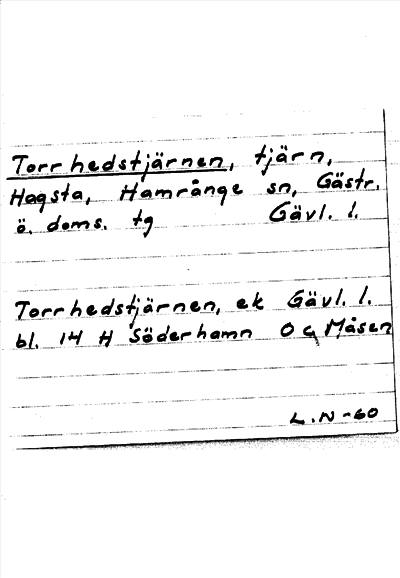 Torrhedstjärnen, tjärn,
Hagsta, Hamrånge sn, Gästr.
ö. doms. tg Gävl. l.
Torrhedstjärnen, ek Gävl. l.
bl. 14 H Söderhamn Måsen
L.N-60